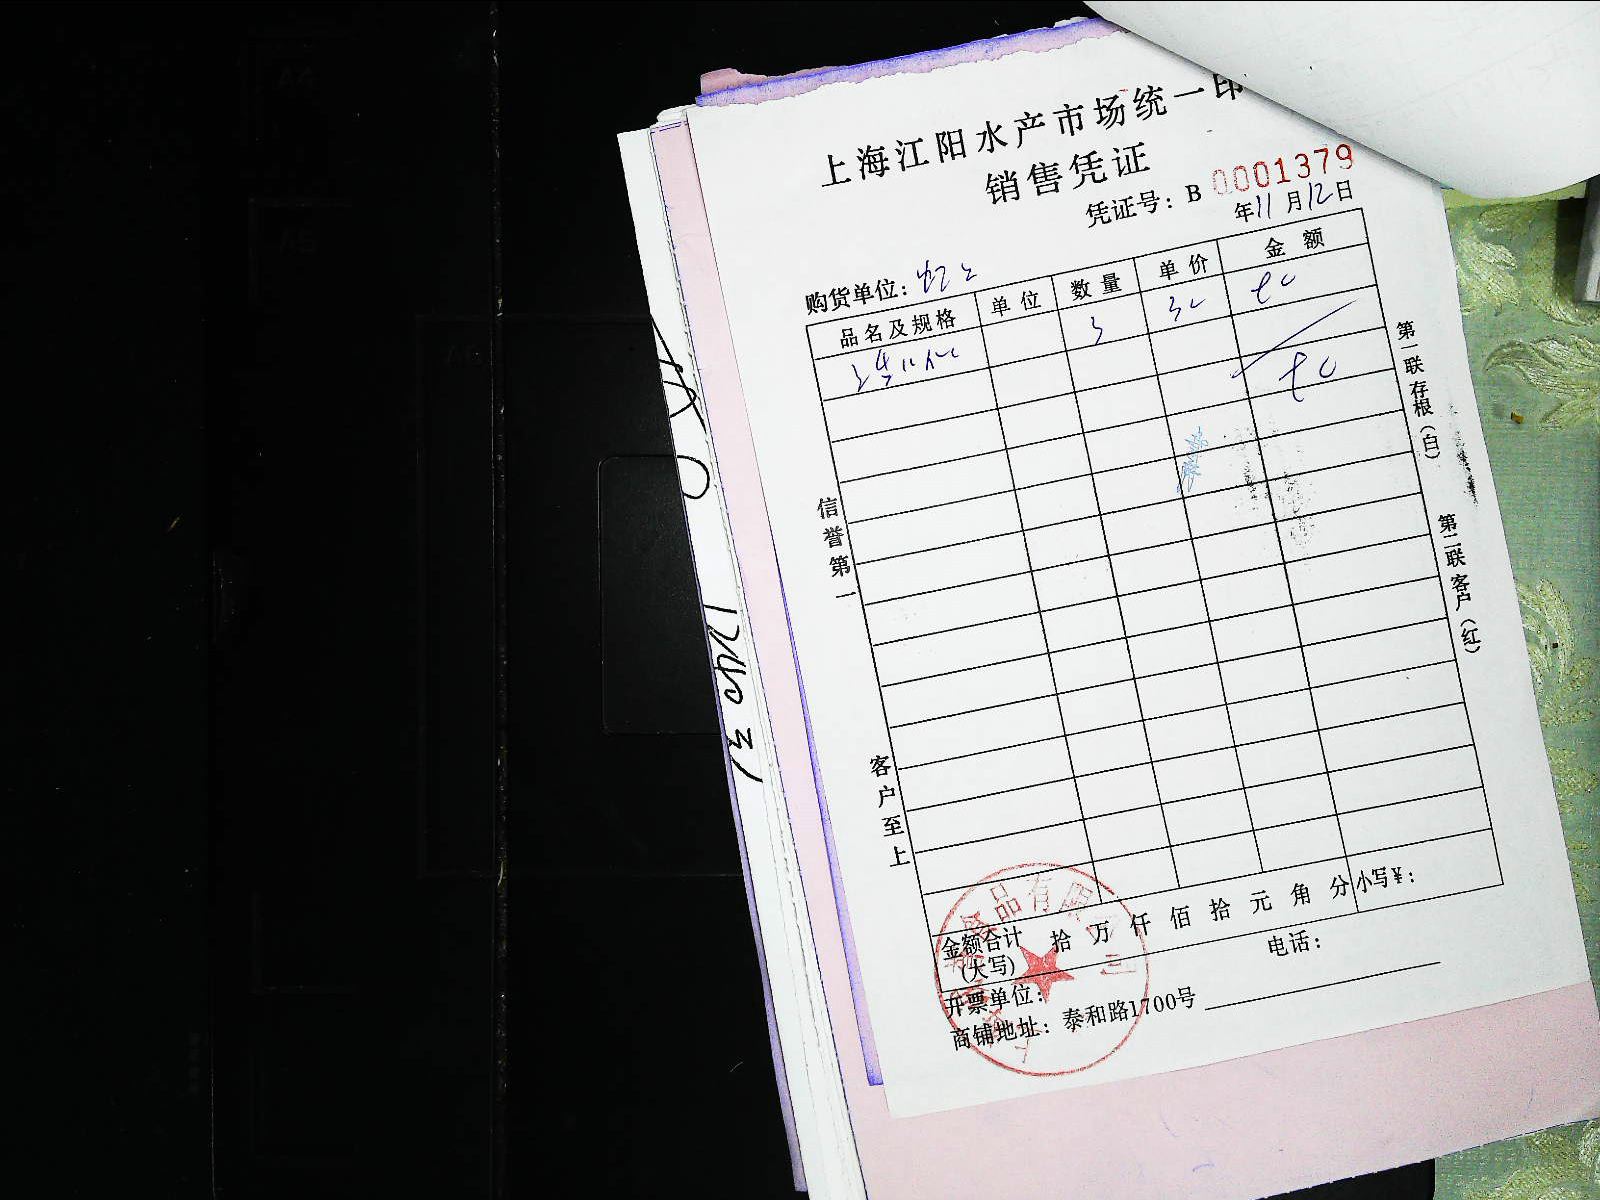 上海江阳水产市场统一印
销售凭证
凭证号：B 0001379
年11月12日
购货单位：
品名及规格 单位 数量 单价 金额
3 30 90
90
信誉第一
客户至上
第一联存根（白）
第二联客户（红）
金额合计（大写） 拾 万 仟 佰 拾 元 角 分 小写¥：
开票单位： 电话：
商铺地址：泰和路1700号
食品有限公司